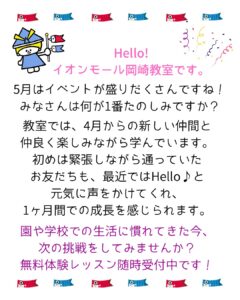 Hello!
イオンモール岡崎教室です。
5月はイベントが盛りだくさんですね！
みなさんは何が1番たのしみですか？
教室では、4月からの新しい仲間と
仲良く楽しみながら学んでいます。
初めは緊張しながら通っていた
お友だちも、最近ではHello♪と
元気に声をかけてくれ、
1ヶ月間での成長を感じられます。
園や学校での生活に慣れてきた今、
次の挑戦をしてみませんか？
無料体験レッスン随時受付中です！